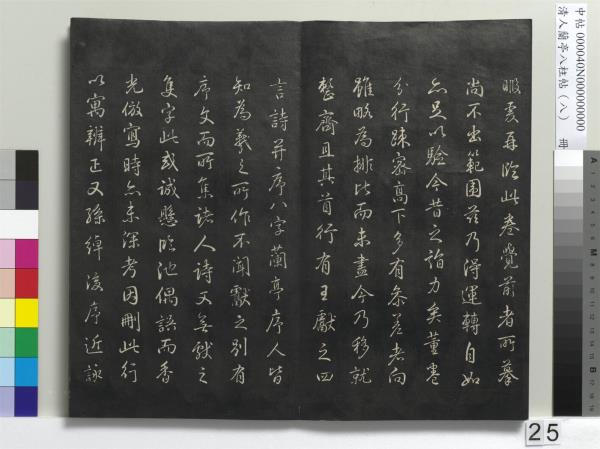 中帖 000040N000000000
清人蘭亭八柱帖(八) 冊
暇爰再臨此卷覺前者所摹
尚不出範圍茲乃得運轉自如
亦足以驗今昔之詣力矣董卷
分行疎密高下多有參差者向
雖略為排比而未盡今乃移就
整齊且其首行有王獻之四
言詩并序八字蘭亭序人皆
知為羲之所作不聞獻之別有
序文而所集諸人詩又無獻之
隻字此或誠懸臨池偶誤而香
光倣寫時亦未深考因刪此行
以寓辨正又孫綽後序近詠
25